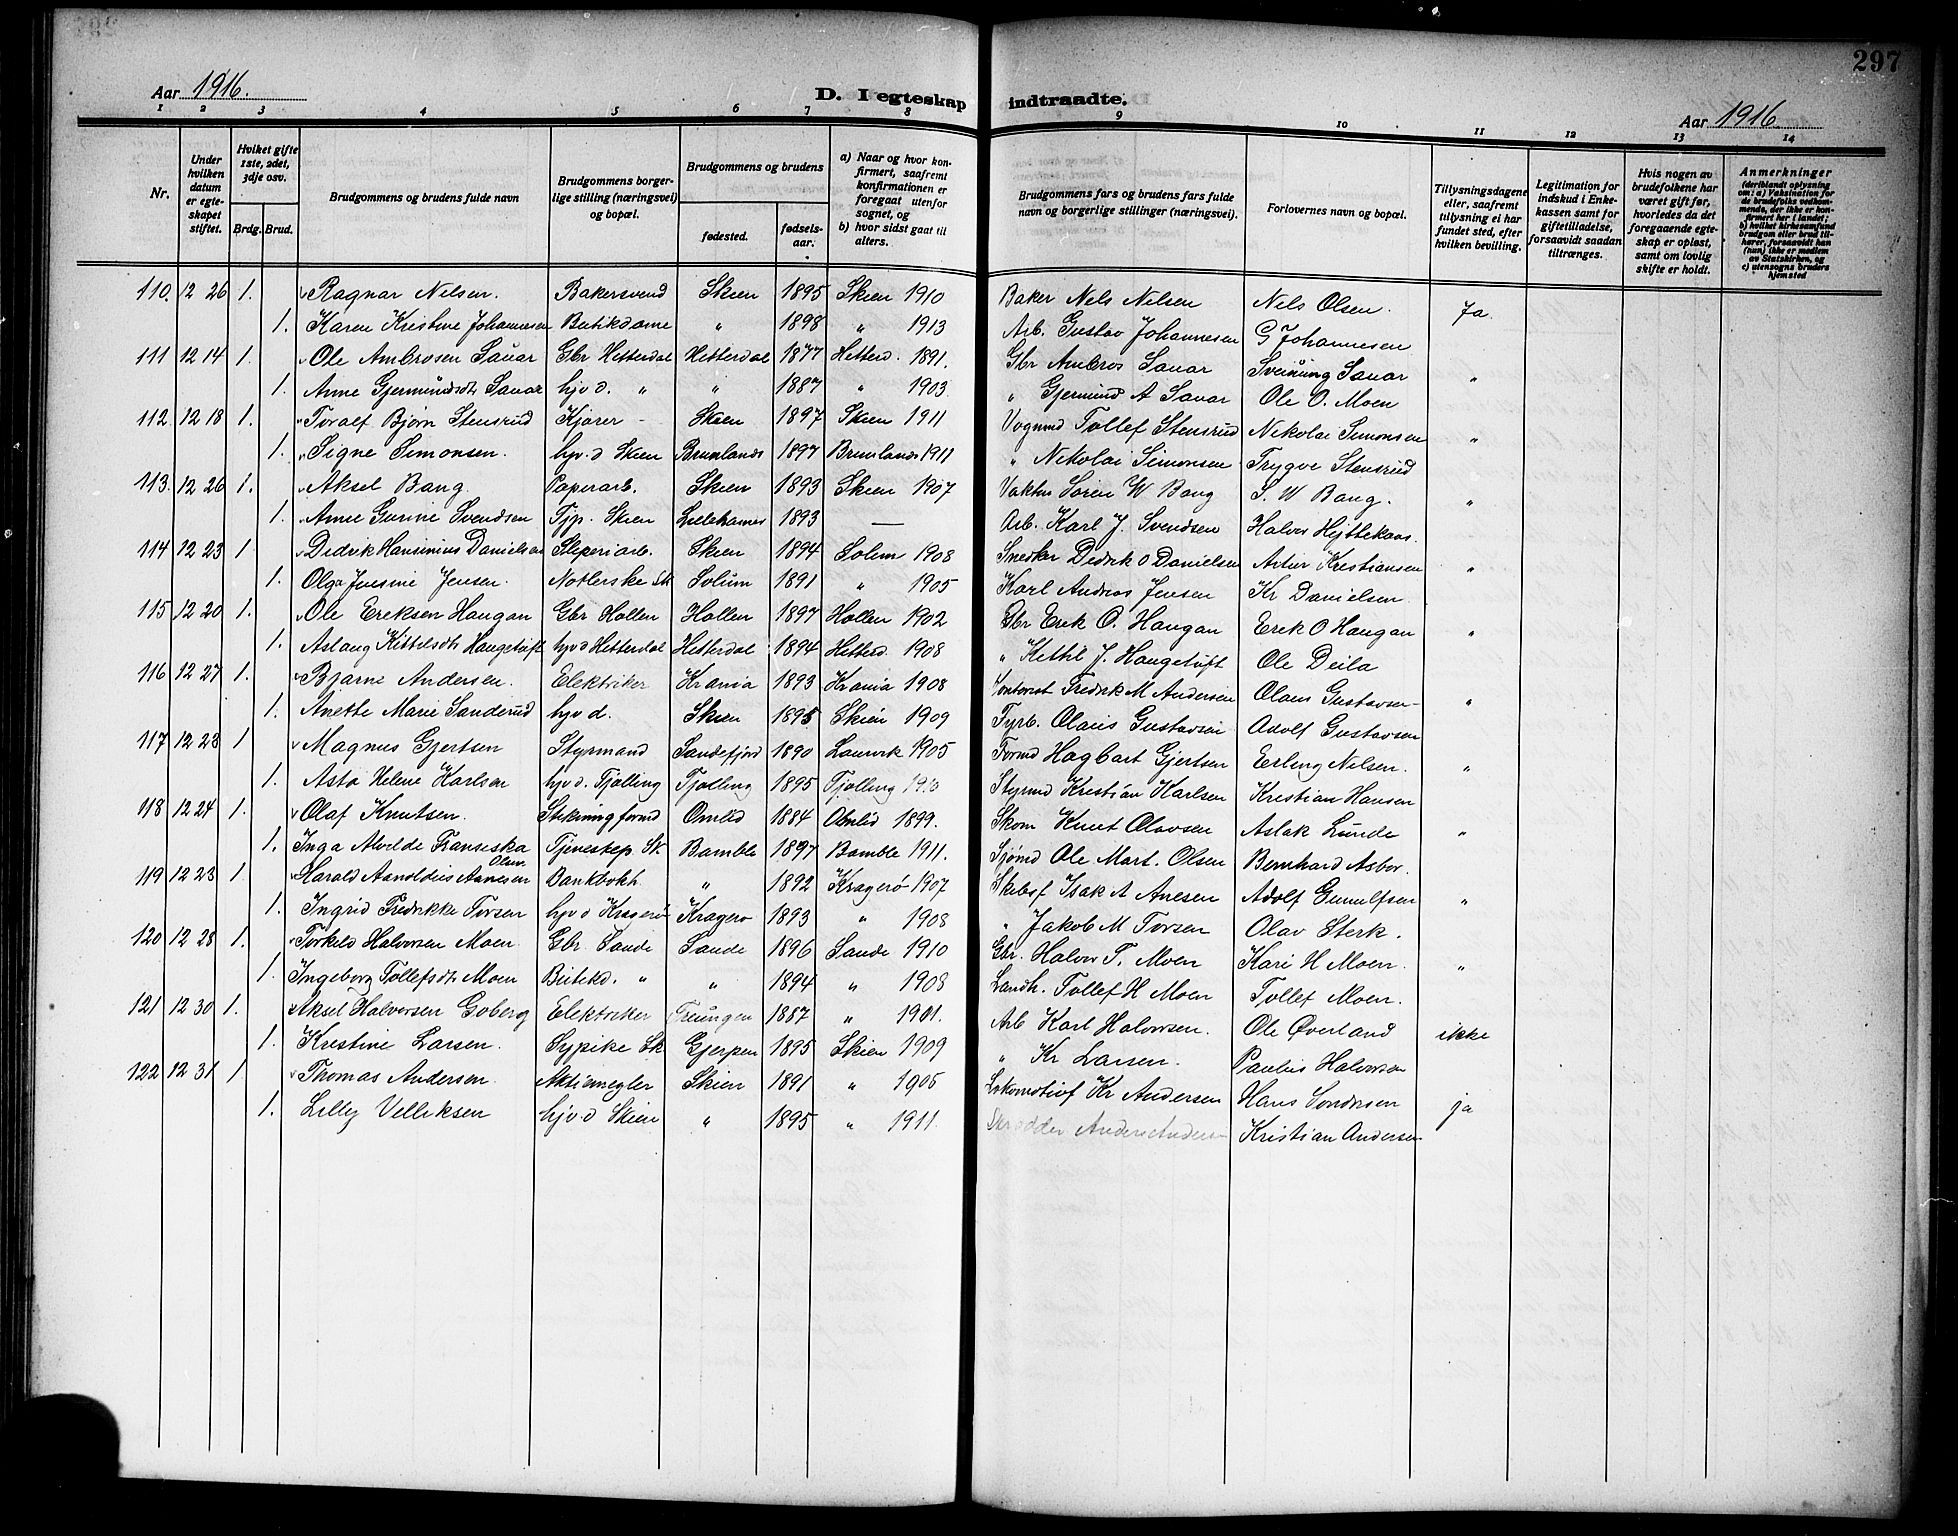 297
Aar 1916.
D. I egteskap indtraadte.
Aar 1916
1 2 3 4 5 6 7 8 9 10 11 12 13 14
Nr.
Under hvilken datum er egteskapet stiftet.
Hvilket gifte 1ste, 2det, 3dje osv.
Brdg. Brud.
Brudgommens og brudens fulde navn
Brudgommens borgerlige stilling (næringsvei) og bopæl.
Brudgommens og brudens
fødested. fødselsaar.
a) Naar og hvor konfirmert, saafremt konfirmationen er foregaat utenfor sognet, og
b) hvor sidst gaat til alters.
Brudgommens fars og brudens fars fulde navn og borgerlige stillinger (næringsvei).
Forlovernes navn og bopæl.
Tillysningsdagene eller, saafremt tillysning ei har fundet sted, efter hvilken bevilling.
Legitimation for indskud i Enkekassen samt for giftetilladelse, forsaavidt saadan tiltrænges.
Hvis nogen av brudefolkene har været gift før, hvorledes da det foregaaende egteskap er opløst, samt om lovlig skifte er holdt.
Anmerkninger
(deriblandt oplysning om: a) Vaksination for de brudefolks vedkommende, der ikke er konfirmert her i landet; b) hvilket kirkesamfund brudgom eller brud tilhører, forsaavidt han (hun) ikke er medlem av Statskirken, og c) utensogns bruders hjemsted
110. 12 26 1. Ragnar Nilsen. Bakersvend Skien 1895 Skien 1910 Baker Nels Nilsen Nels Olsen. Ja.
1. Karen Kristine Johannesen Butikdame " 1898 " 1913 Arb. Gustav Johannesen G Johannesen
111 12 14 1. Ole Ambrosen Sauar Gbr Hitterdal Hitterdal 1877 Hitterd. 1891. Gbr Ambros Sauar Sveinung Sauar "
1. Anne Gjermundsdt. Sauar hjv d. " " 1887 " 1903 " Gjermund A Sauar Ole O. Moen
112. 12 18 1. Toralf Bjørn Stensrud Kjører - Skien 1897 Skien 1911 Vognmd Tollef Stensrud Nikolai Simonsen "
1. Signe Simonsen. hjv. d Skien Brunlands 1897 Brunlands 1911 " Nikolai Simonsen Trygve Stensrud
113. 12 26 1. Aksel Bang Papirarb. Skien 1893 Skien 1907 Vaktm Søren W Bang S. W Bang. "
1. Anne Gurine Svendsen Tjp. Skien Lillehamer 1893 — Arb. Karl J. Svendsen Halvor Hejttekaas.
114 12 23 1 Didrik Hansinius Danielsen Sliperiarb. Skien 1894 Solum 1908 Snedker Didrik O Danielsen Artur Kristiansen "
1. Olga Jensine Jensen. Notlerske Sk Solum 1891 " 1905 Karl Andreas Jensen Kr Danielsen
115 12 20 1. Ole Eriksen Haugan Gbr Hollen Hollen 1897 Hollen 1902 Gbr Erik O. Haugan Erik O Haugan "
1. Aslaug Kittelsdt. Haugetuft hjvd Hitterdal Hitterdal 1894 Hitterd 1908 " Kittil J. Haugetuft Ole Deila
116 12 27 1. Bjarne Andersen. Elektriker Krania 1893 Krania 1908 Kontorist Fredrik M Andersen Olaus Gustavsen "
1. Anette Marie Sanderud hjv d. Skien 1895 Skien 1909 Fyrb. Olaus Gustavsen Adolf Gustavsen
117 12 23 1 Magnus Gjertsen Styrmand Sandefjord 1890 Laurvik 1905 Formd Hagbart Gjertsen Erling Nilsen. "
1. Asta Helene Karlsen hjv d. Tjølling Tjølling 1895 Tjølling Styrmd Kristian Karlsen Kristian Hansen
118 12 24 1. Olaf Knutsen. Stikningsformd Omlid 1884 Omlid 1899. Skom Knut Olavsen Aslak Lunde "
1. Inga Alvilde Franseska Olsen Tjeneskep. Sk. Bamble 1897 Bamble 1911. Sjømd Ole Mart. Olsen Bernhard Asbor.
119 12 23 1. Harald Arnoldius Aanesen Bankbokh. " 1892 Kragerø 1907 Skibsf Isak A Anesen Adolf Gunulfsen "
1. Ingrid Fredrikke Torsen hjv d Kragerø Kragerø 1893 " 1908 " Jakob M Torsen Olav Sterk.
120 12 28 1. Torkeld Halvorsen Moen Gbr. Sande Sande 1896 Sande 1910 Gbr. Halvor T. Moen Kari H Moen. "
1. Ingeborg Tollefsdt. Moen Butikd. " " 1894 " 1908 Landh. Tollef H Moen Tollef Moen.
121 12 30 1. Aksel Halvorsen Goberg Elektriker Treungen 1887 " 1901. Arb Karl Halvorsen. Ole Øverland ikke
1. Kristine Larsen. Sypike Sk Gjerpen 1895 Skien 1909 " Kr Larsen. Paulus Halvorsen
122 12 31 1. Thomas Andersen Aktiemegler Skien 1891 " 1905 Lokomotivf Kr Andersen Hans Sondresen ja
1. Lilly Villiksen hjv d Skien " 1895 " 1911. Skrædder Anders Anders Kristian Andersen